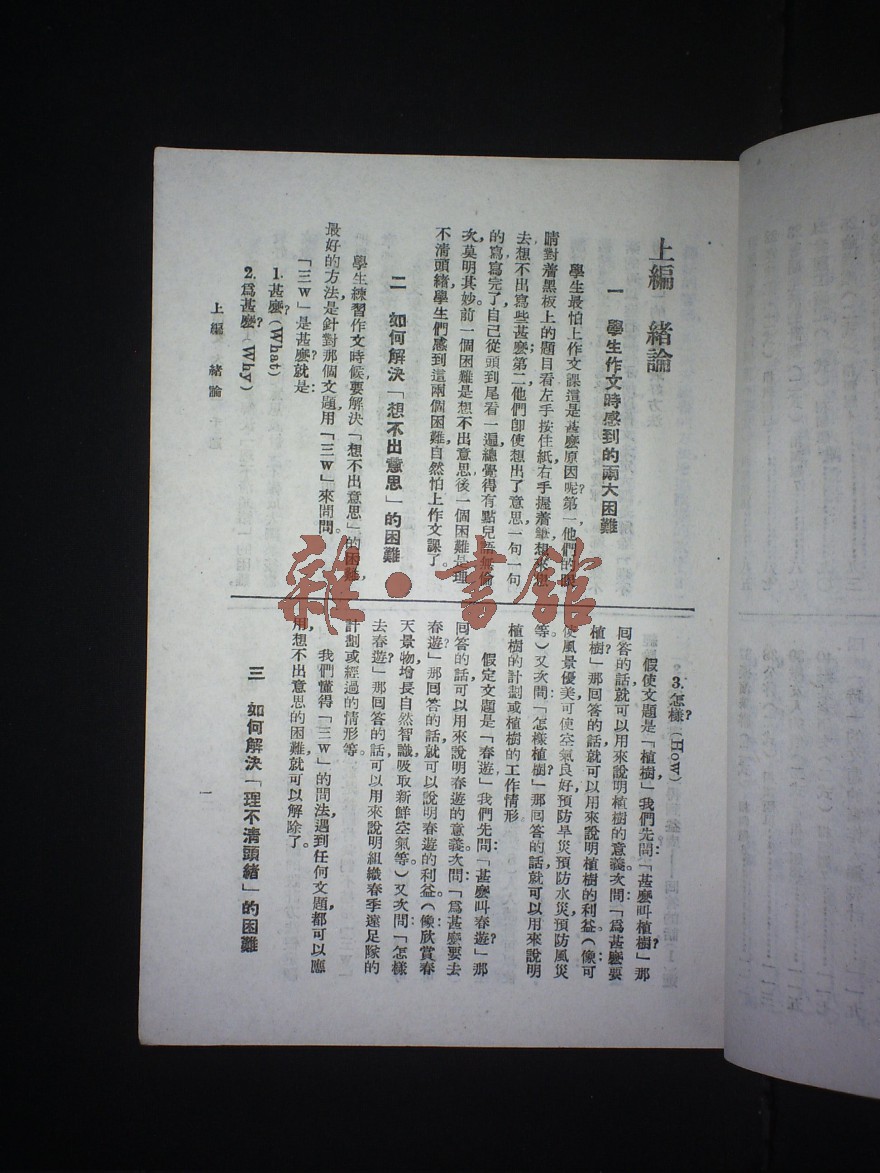 上編　緒論
一　學生作文時感到的兩大困難
學生最怕上作文課這是甚麼原因呢?第一，他們的眼
睛對着黑板上的題目看左手按住紙右手握着筆，想來想
去想不出寫些甚麼；第二，他們卽使想出了意思一句一句
的寫，寫完了，自己從頭到尾看一遍，總覺得有點兒語無倫
次，莫明其妙。前一個困難是想不出意思，後一個困難是理
不清頭緒，學生們感到這兩個困難，自然怕上作文課了。
二　如何解決「想不出意思」的困難
學生練習作文時候，要解決「想不出意思」的困難，
最好的方法是針對那個文題，用「三W」來問問。
「三W」是甚麼?就是：
1.甚麼?(What)
2.爲甚麼?(Why)
3.怎樣?(How)
假使文題是「植樹」，我們先問：「甚麼叫植樹?」那
回答的話，就可以用來說明植樹的意義。次問：「爲甚麼要
植樹?」那回答的話，就可以用來說明植樹的利益（像可
使風景優美，可使空氣良好，預防旱災，預防水災，預防風災
等）。又次問：「怎樣植樹?」那回答的話，就可以用來說明
植樹的計劃或植樹的工作情形
假定文題是「春遊」，我們先問：「甚麼叫春遊?」那
回答的話，可以用來說明春遊的意義。次問：「爲甚麼要去
春遊?」那回答的話，就可以說明春遊的利益（像欣賞春
天景物，增長自然智識，吸取新鮮空氣等。）又次問：「怎樣
去春遊?」那回答的話，可以用來說明組織春季遠足隊的
計劃或經過的情形等。
我們懂得「三W」的問法，遇到任何文題，都可以應
用，想不出意思的困難，就可以解除了。
三　如何解決「理不清頭緒」的困難
上編　緒論
一
雜·書館